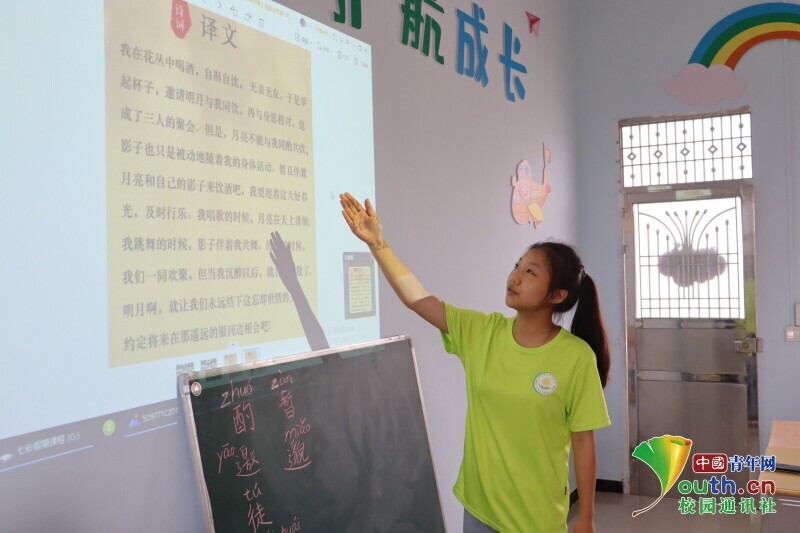 航成长
诗词
译文
我在花丛中喝酒，自斟自饮，无亲无友。于是举
起杯子，邀请明月与我同饮，再与身影相对，就
成了三人的聚会。但是，月亮不能与我同酌共饮，
影子也只是被动地随着我的身体活动。暂且伴着
月亮和自己的影子来饮酒吧，我要趁着这大好春
光，及时行乐。我唱歌的时候，月亮在天上徘徊;
我跳舞的时候，影子伴着我共舞。时候，
我们一同欢聚，但当我沉醉以后，就散了.
明月啊，就让我们永远结下这忘却世情的
约定将来在那遥远的银河边相会吧!
七彩假期课程
SD9771C20
zhuó zàn
酌 暂
yāo miǎo
邀 邈
tú
徒
huái
中國青年网
youth.cn
校园通讯社